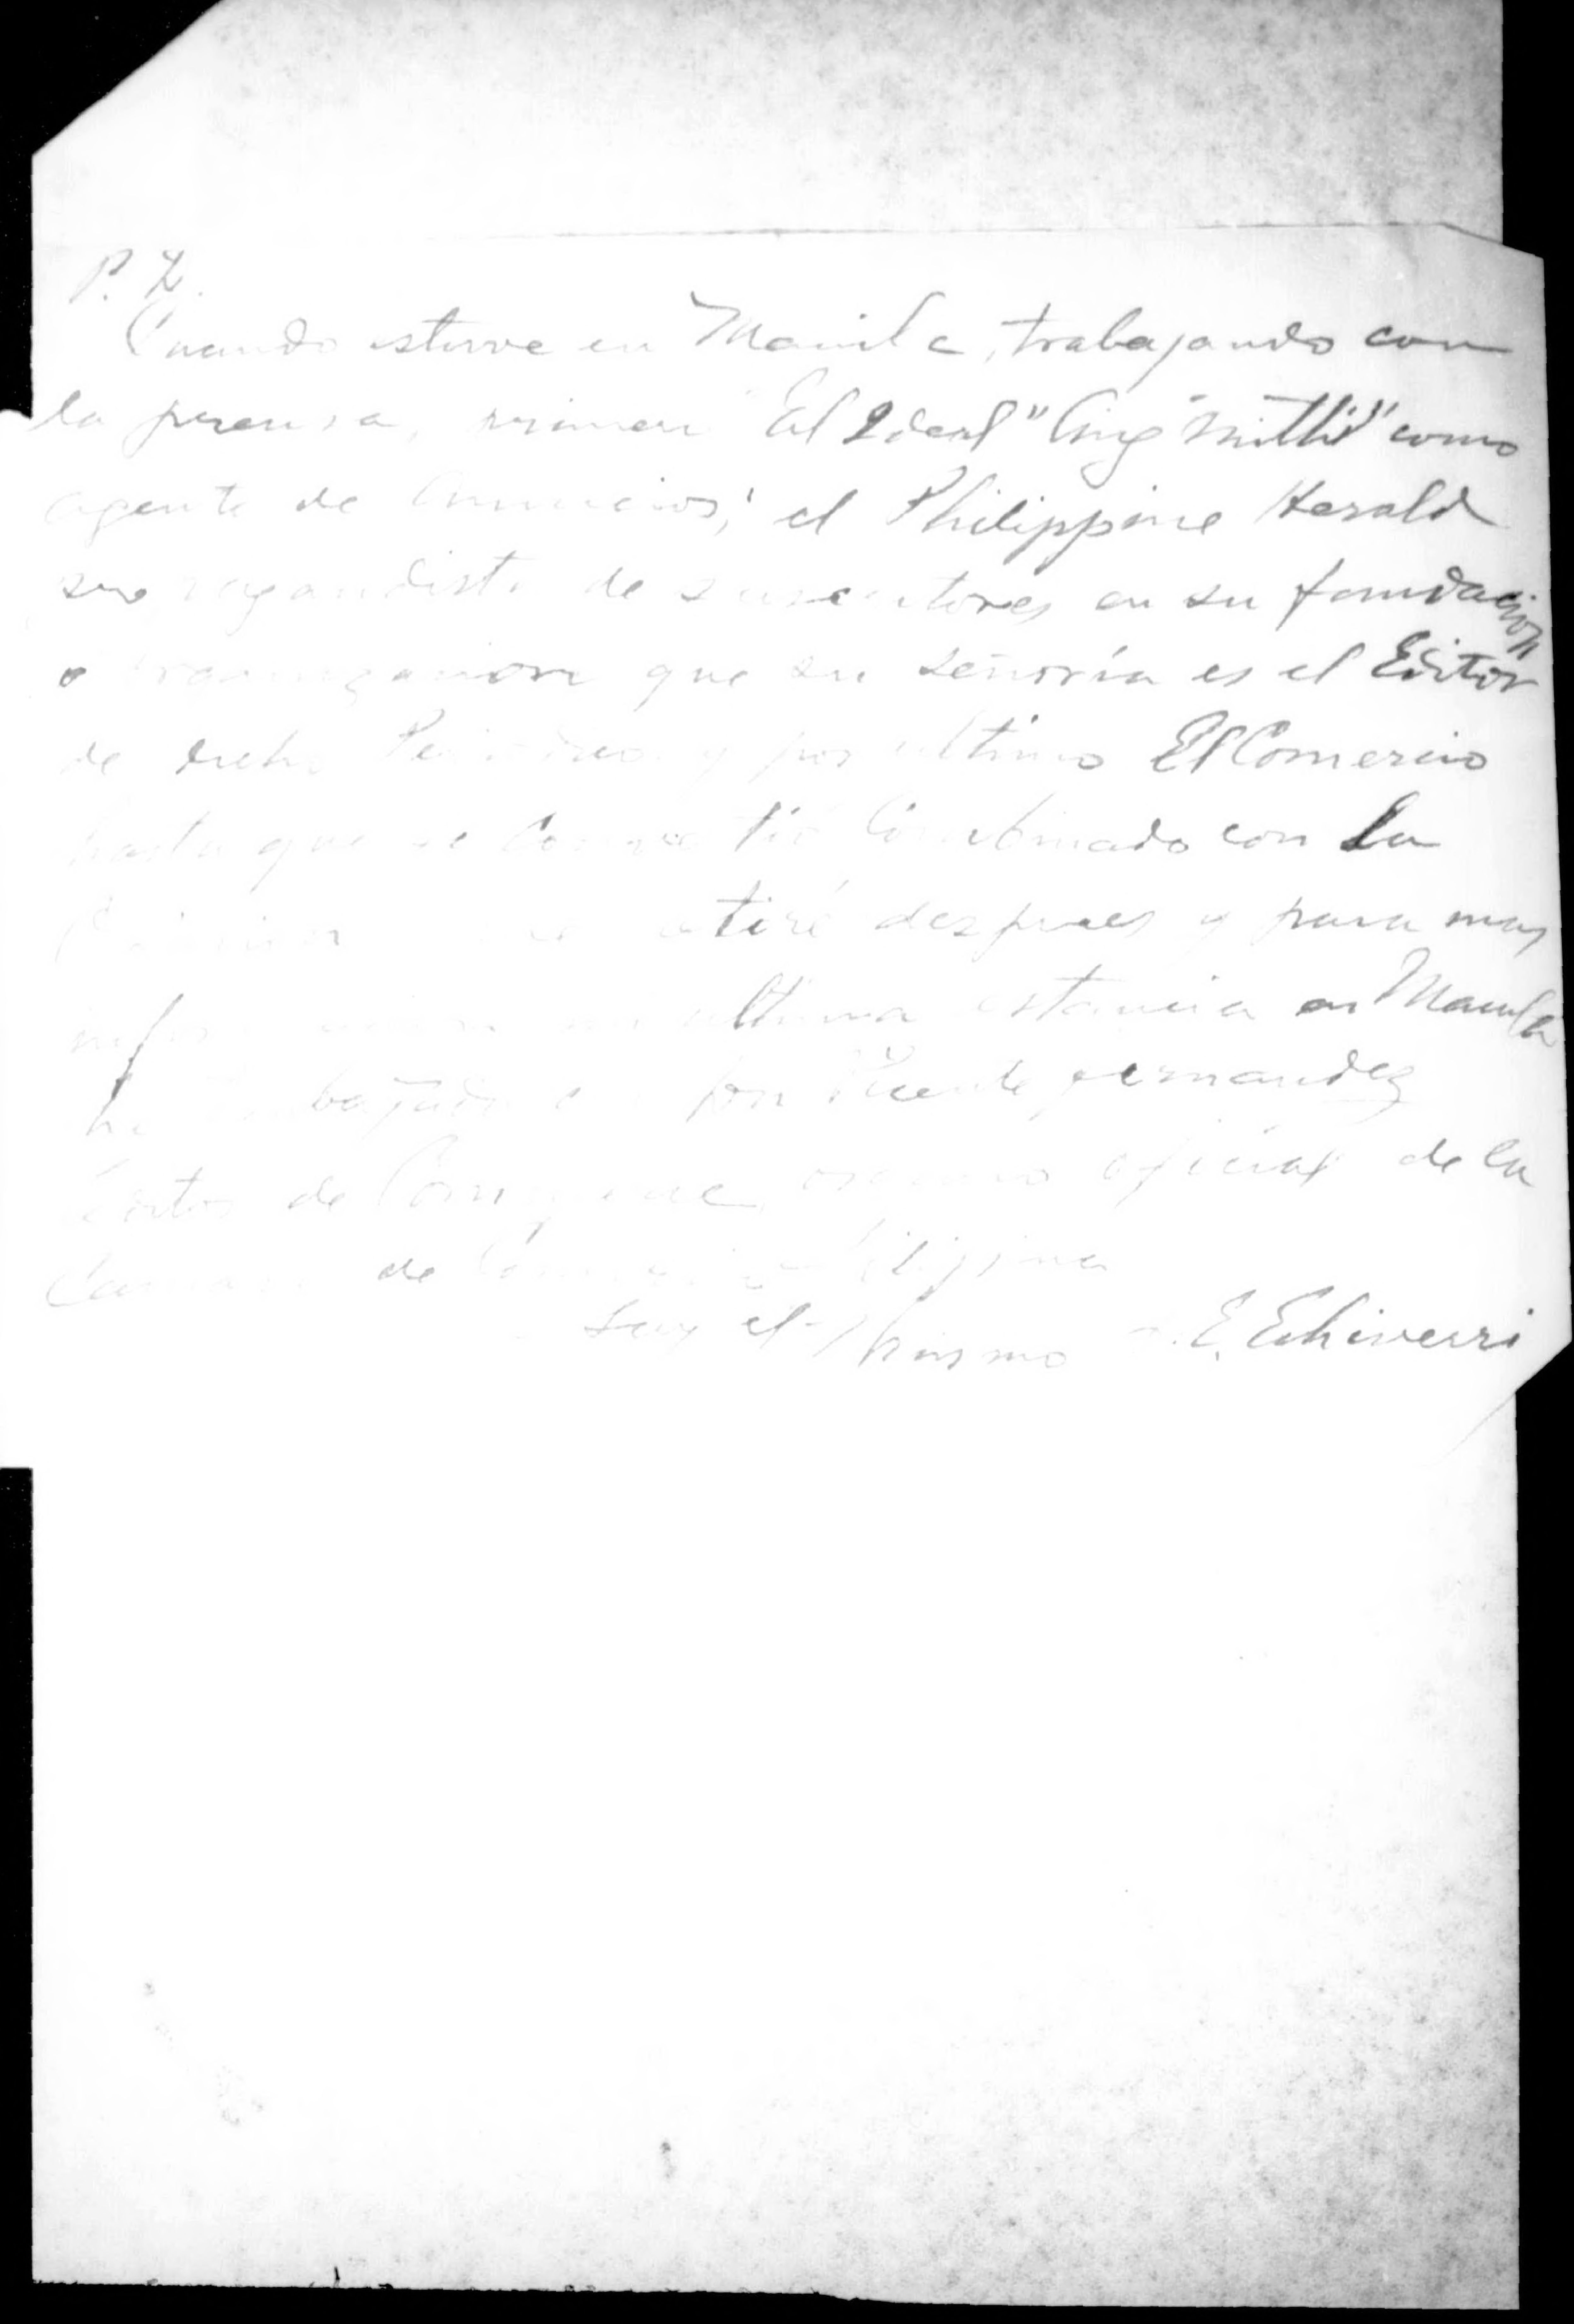 P. D.
Cuando estuve en Manila, trabajando con
la prensa, primero El Ideal "Ang Mithi" como
agente de Anuncios; el Philippine Herald
propagandista de suscritores en su fundación
o organizacion que su señoría es el Editor
de dicho Periodico y por ultimo El Comercio
hasta que se convertió Combinado con La
me retiré despues y para mas
informacion mi ultima estancia en Manila
he trabajado con Don Vicente Fernandez
Editor de organo oficial de la
Camara de Comercio Filipina
Soy el mismo E. Echiverri